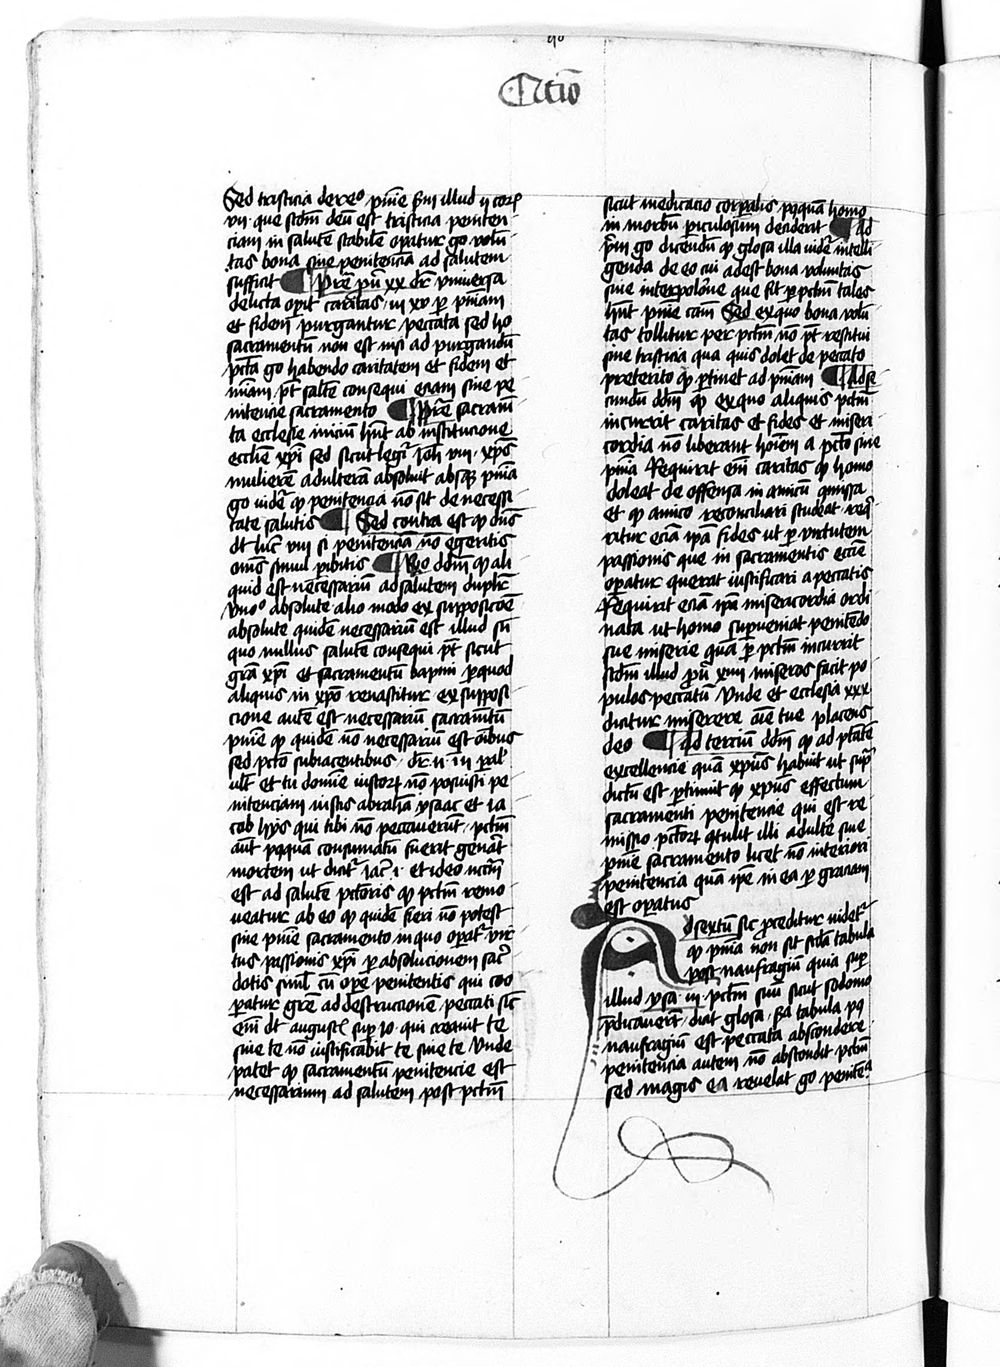 Q̄tio
Sed tristicia de reo pn̄ie scm̄ illud ij cor̄
vii · que scdm̄ deū est tristicia peniten
ciam in salutē stabilē opatur g̊ volū
tas bona sine penitencia ad salutem
sufficit ¶ Pret̄ pū xx dr̄ vniuersa
delicta opit caritas · in xv p pn̄iam
et fidem purgantur peccata sed hō
sacramentū non est nisi ad purgandū
pctā g̊ habendo caritatem et fidem et
mīam pt̄ saltē consequi eciam sine pe
nitencie sacramento ¶ Pret̄ sacramē
ta ecclesie iniciū hn̄t ab institucione
ecclie xpī sed sicut legir̄ Joh viii · xps̄
mulierē adulterā absoluit absqꝫ pn̄ia
g̊ videt̄ ꝙ penitencia nō sit de necessi
tate salutis ¶ Sed contra est ꝙ dn̄s
dt̄ luc̄ xiii si penitencīam nō egeritis
om̄s simul pibitis ¶ Rn̄o ddm̄ ꝙ ali
quid est necessariū ad salutem duplr̄
vno͛ absolute alio modo ex supposicōe
absolute quidē necessariū est illud sn̄
quo nullus salutē consequi pt̄ sicut
grā xpī et sacramentū baptmi p quod
aliquis in xpō renascitur ex supposi
cione autē est necessariū sacramētū
pn̄ie ꝙ quidē nō necessariū est oīibus
sed pctō subiacentibus · dr̄ · n̄ · in pal̄
ult̄ et tu domine iustor̄ nō posuisti pe
nitenciam iustis abrahā ysaac et ia
cob hijs qui tibi nō peccauerūt · pctm̄
aut̄ pq̄uā consumatū fuerit genāt
mortem ut dr̄ Jac̄ i · et ideo nccm̄
est ad salutē pctōris ꝙ pctm̄ remo
ueatur ab eo ꝙ quidē fieri nō potest
sine pn̄ie sacramento in quo opat̄ vir
tus passionis xpī p absolucionem sacr̄
dotis siml̄ cū ope penitentis qui coo
patur grē ad destructionē peccati sic̄
em̄ dt̄ augustꝫ sup Jo · qui creauit te
sine te nō iustificabit te sine te Vnde
patet ꝙ sacramentū penitencie est
necessarium ad salutem post pctm̄
sicut medicacio corpalis pq̄uā homo
in morbū piculosum deciderit ¶ Ad
pm̄ g̊ dicendū ꝙ glosa illa videt̄ intelli
genda de eo cui adest bona voluntas
sine interpolōne que fit p pctm̄ tales
hn̄t pn̄ie cām Sed ex quo bona volū
tas tollitur per pctm̄ nō pt̄ restitui
sine tristicia qua quis dolet de peccato
preterito ꝙ ptinet ad pn̄iam ¶ Ad se
cundū ddm̄ ꝙ ex quo aliquis pctm̄
incurrit caritas et fides et miseri
cordia nō liberant hoīem a pctō sine
pn̄ia Requirit em̄ caritas ꝙ homo
doleat de offensa in amicū cmissa
et ꝙ amico reconciliari studeat · req̄
ritur eciā ipā fides ut p virtutem
passionis que in sacramentis eccīe
opatur querat iustificari a peccatis
Requirit eciā ipā misericordia ordi
nata ut homo supueniat penitēdo
sue miserie quā p pctm̄ incurrit
scdm̄ illud pū xiiii miseros facit po
pulos peccatū Vnde et ecclesia xxx
dicitur miserere aīe tue placens
deo ¶ Ad tercium ddm̄ ꝙ ad ptātē
excellencie quā xpūs habuit ut sup̄
dictū est ptinuit ꝙ xpūs effectum
sacramenti penitencie qui est re
missio pctor̄ qtulit illi adultē sine
pn̄ie sacramento licet nō interiori
penitencia quā ipē in ea p graciam
est opatus
Ad sextū sic pceditur videt̄
ꝙ pn̄ia non sit scdā tabula
post naufragiū quia sup
illud ysa iij pctm̄ suū sicut sodoma
pdicauerūt · dicit glosa scdā tabula pꝯ
naufragiū est peccata abscondere
penitencia autem nō abscondit pctm̄
sed magis ea reuelat g̊ penitēa